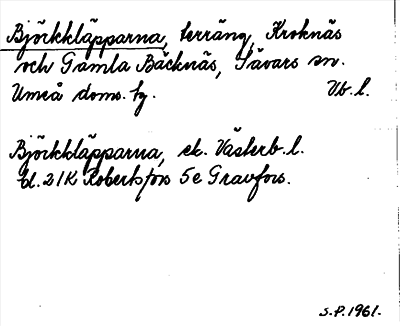 Björkkläpparna, terräng, Kroknäs
och Gamla Bäcknäs, Sävars sn.
Umeå doms. tg. Vb. l.
Björkkläpparna, ek. Västerb. l.
bl. 21K Robertsfors 5e Gravfors.
S.P. 1961.